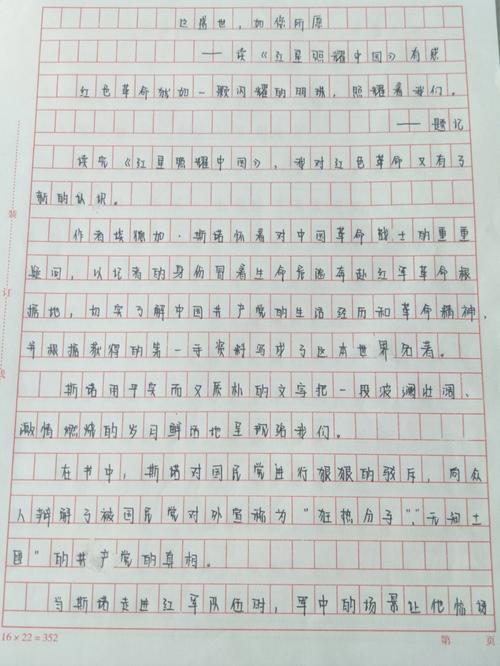 这盛世，如您所愿
——读《红星照耀中国》有感
红色革命就如一颗闪耀的明珠，照耀着我们。
——题记
读完《红星照耀中国》，我对红色革命又有了
新的认识。
作者埃德加·斯诺怀着对中国革命战士的重重
疑问，以记者的身份冒着生命危险奔赴红军革命根
据地，切实了解中国共产党的生活经历和革命精神，
并根据获得的第一手资料写成了这本世界名著。
斯诺用平实而又质朴的文字把一段波澜壮阔、
激情燃烧的岁月鲜活地呈现给我们。
在书中，斯诺对国民党进行狠狠的驳斥，向众
人辩解了被国民党对外宣称为“狂热分子”、“无知土
匪”的共产党的真相。
当斯诺走进红军队伍时，军中的场景让他惊讶
16×22=352
第 页
装
订